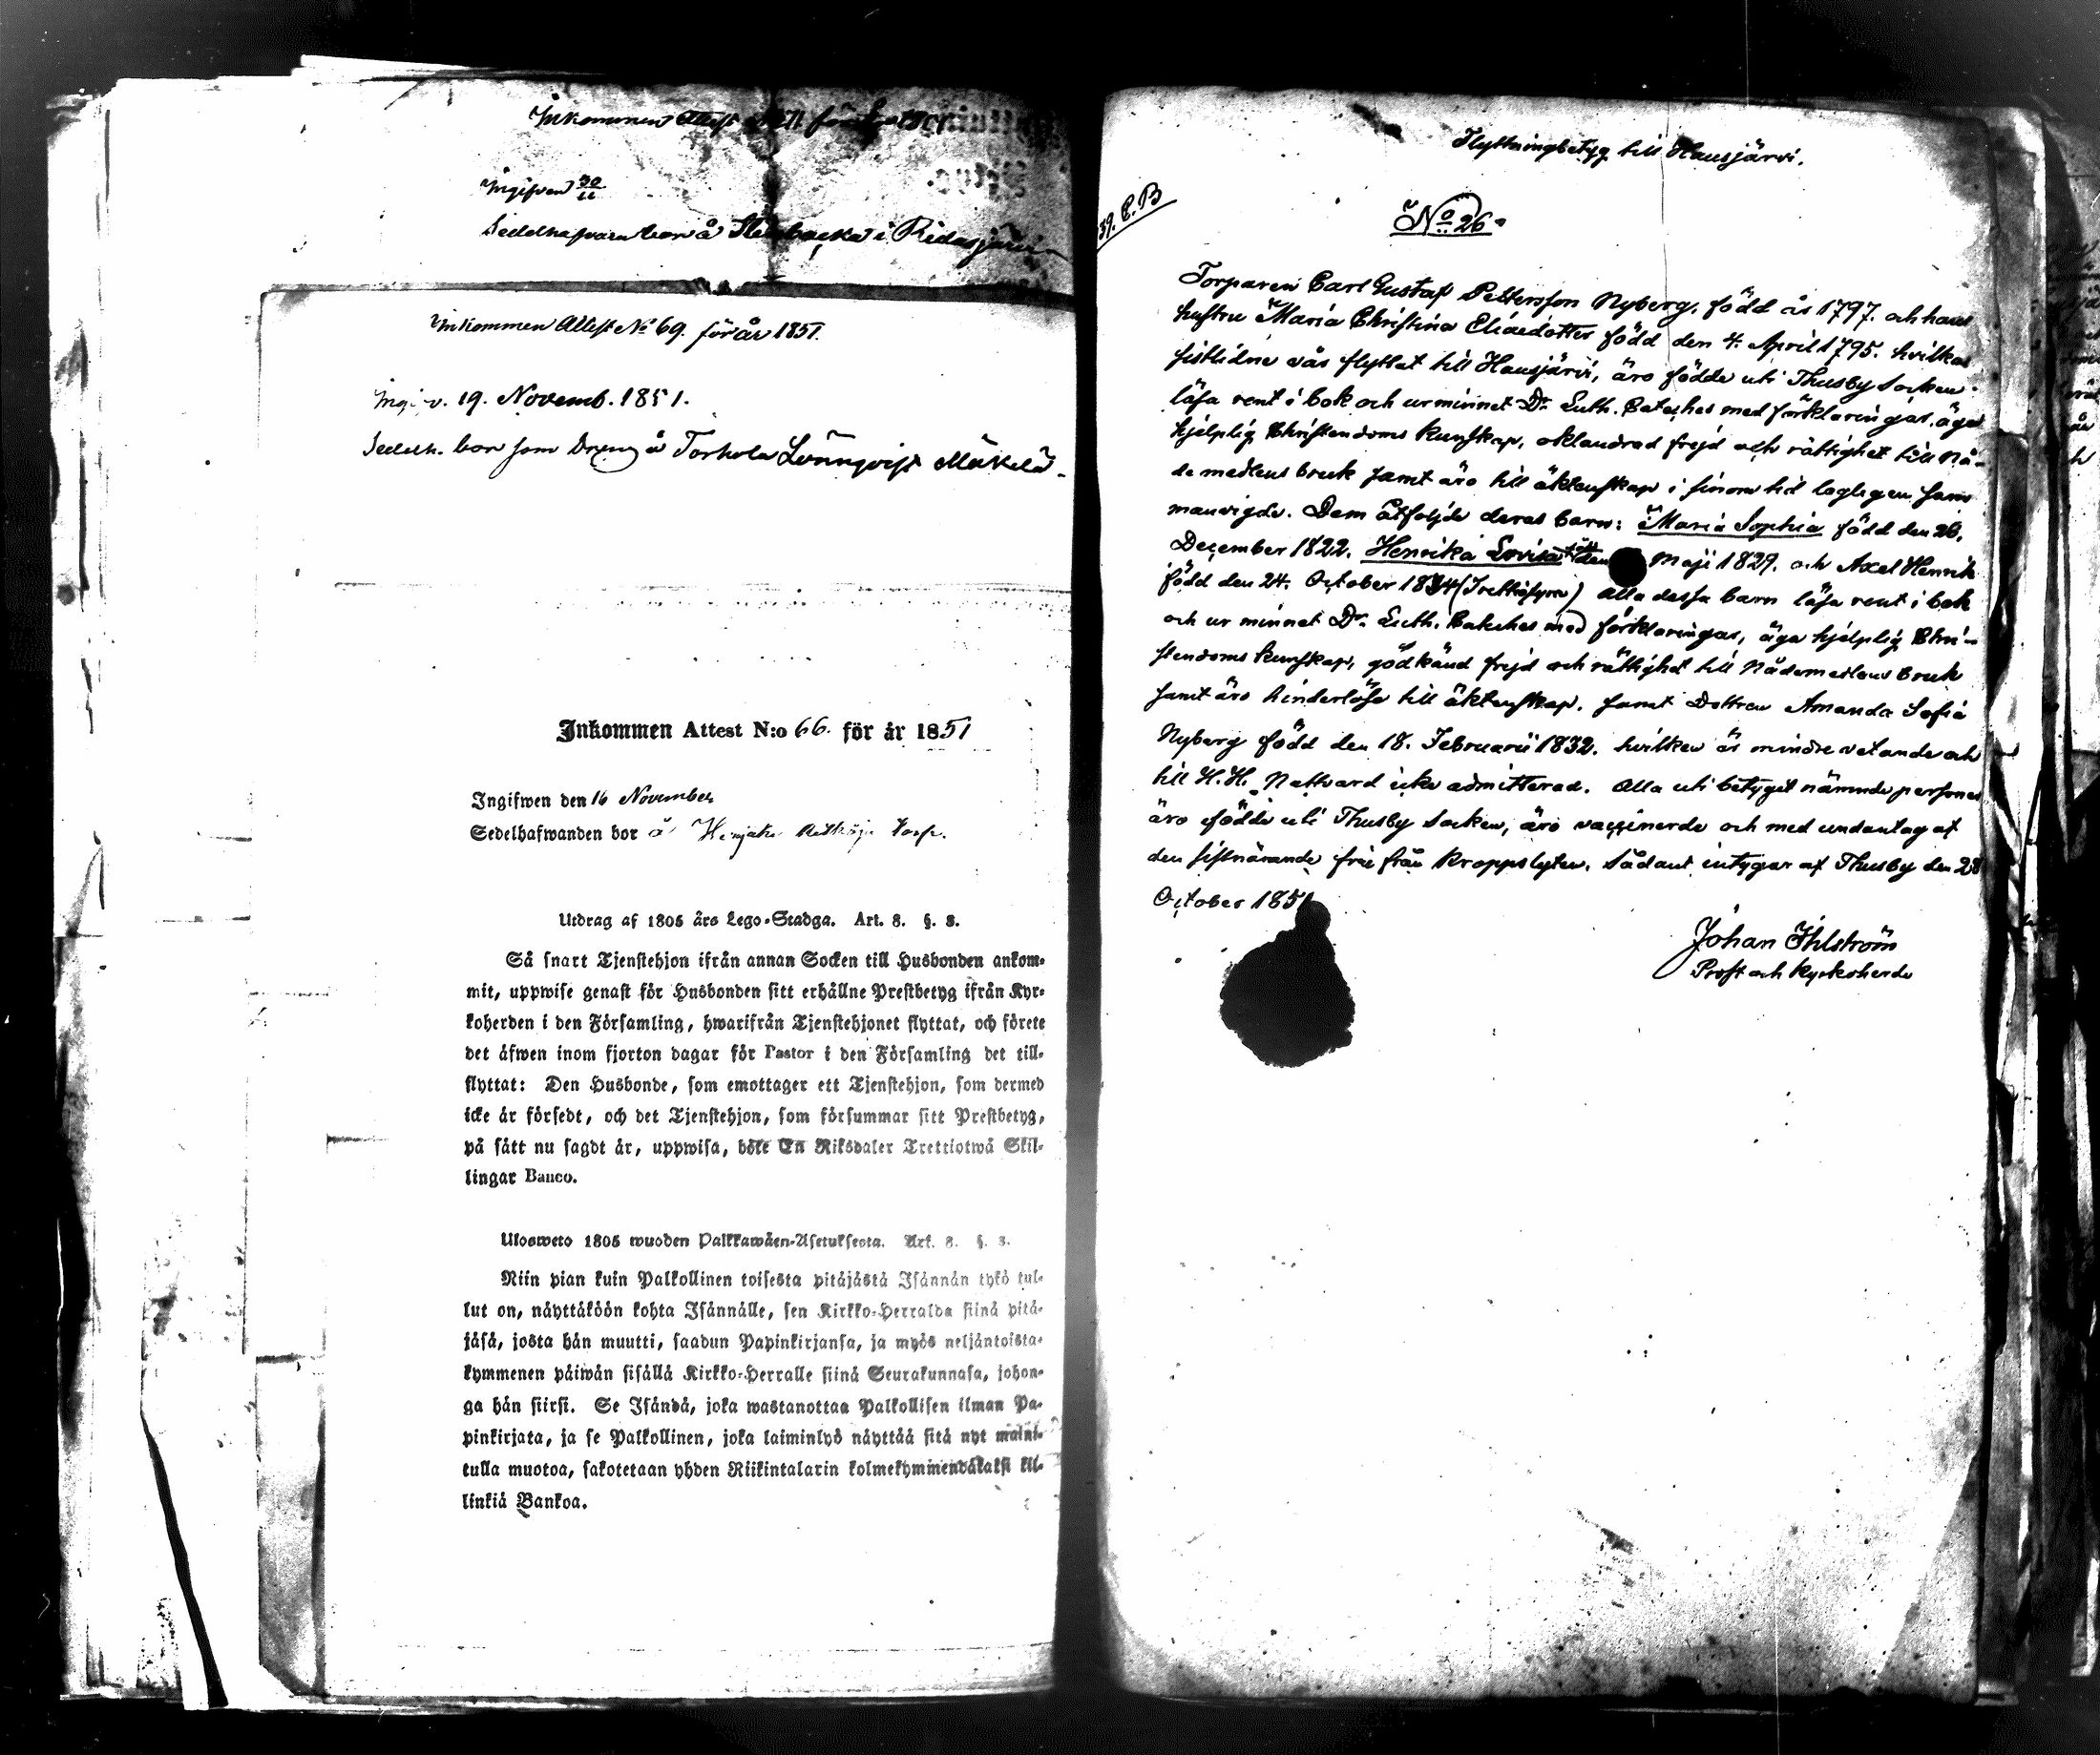 Inkommen Attest
Ingifven 30/11
Sedelhafvaren bor å i Ridasjärvi
Inkommen Attest No 69. för år 1851.
19. Novemb. 1851.
Sedelh. bor som Dreng å Torhola Lönnqvist Mäkelä
Inkommen Attest N:o 66. för år 1851
Ingifwen den 16 November
Sedelhafwanden bor å torp.
Utdrag af 1805 års Lego-Stadga. Art. 8. §. 8.
Så snart Tjenstehjon ifrån annan Socken till Husbonden ankom-
mit, uppwise genast för Husbonden sitt erhållne Prestbetyg ifrån Kyr-
koherden i den Församling, hwarifrån Tjenstehjonet flyttat, och förete
det äfwen inom fjorton dagar för Pastor i den Församling det till-
flyttat: Den Husbonde, som emottager ett Tjenstehjon, som dermed
icke är försedt, och det Tjenstehjon, som försummar sitt Prestbetyg,
på sätt nu sagdt är, uppwisa, böte En Riksdaler Trettiotwå Skil-
lingar Banco.
Ulosweto 1805 wuoden Palkkawäen-Asetuksesta. Art. 8. §. 8.
Niin pian kuin Palkollinen toisesta pitäjästä Isännän tykö tul-
lut on, näyttäköön kohta Isännälle, sen Kirkko-Herralda siinä pitä-
jäsä, josta hän muutti, saadun Papinkirjansa, ja myös neljäntoista-
kymmenen päiwän sisällä Kirkko-Herralle siinä Seurakunnasa, johon-
ga hän siirsi. Se Isändä, joka wastanottaa Palkollisen ilman Pa-
pinkirjata, ja se Palkollinen, joka laiminlyö näyttää sitä nyt maini-
tulla muotoa, sakotetaan yhden Riikintalarin kolmekymmendäkaksi kil-
linkiä Bankoa.
Flyttningbetyg till Hausjärvi.
39. C.B
No 26.
Torparen Carl Gustaf Pettersson Nyberg, född år 1797. och hans
hustru Maria Christina Eliaedotter född den 4. April 1795. hvilka
sistlidne vår flyttat till Hausjärvi, äro födde uti Thusby Socken.
läsa rent i bok och ur minnet Dr. Luth. Cateches med förklaringar, äga
hjelplig Christendoms kunskap, oklandrad frejd och rättighet till Nå-
demedlens bruk samt äro till äktenskap i sinom tid lagligen sam
manvigde. Dem åtfölje deras barn: Maria Sophia född den 26.
December 1822. Henrika Lovisa född den Maji 1829. och Axel Henrik
född den 24. October 1834 (Trettiofyra) alla dessa barn läsa rent i bok
och ur minnet Dr. Luth. Cateches med förklaringar, äga hjelplig Chri-
stendoms kunskap, godkänd frejd och rättighet till Nådemedlens bruk
samt äro hinderlösa till äktenskap. samt Dottren Amanda Sofia
Nyberg född den 18. Februarii 1832. hvilken är mindre vetande och
till H. H. Nattvard icke admitterad. Alla uti betyget nämnde personer
äro födde uti Thusby Socken, äro vaccinerde och med undantag af
den sistnämnde frie från kroppslyten. Sådant intygar af Thusby den 28
October 1851
Johan Ihlström
Prost och kyrkoherde